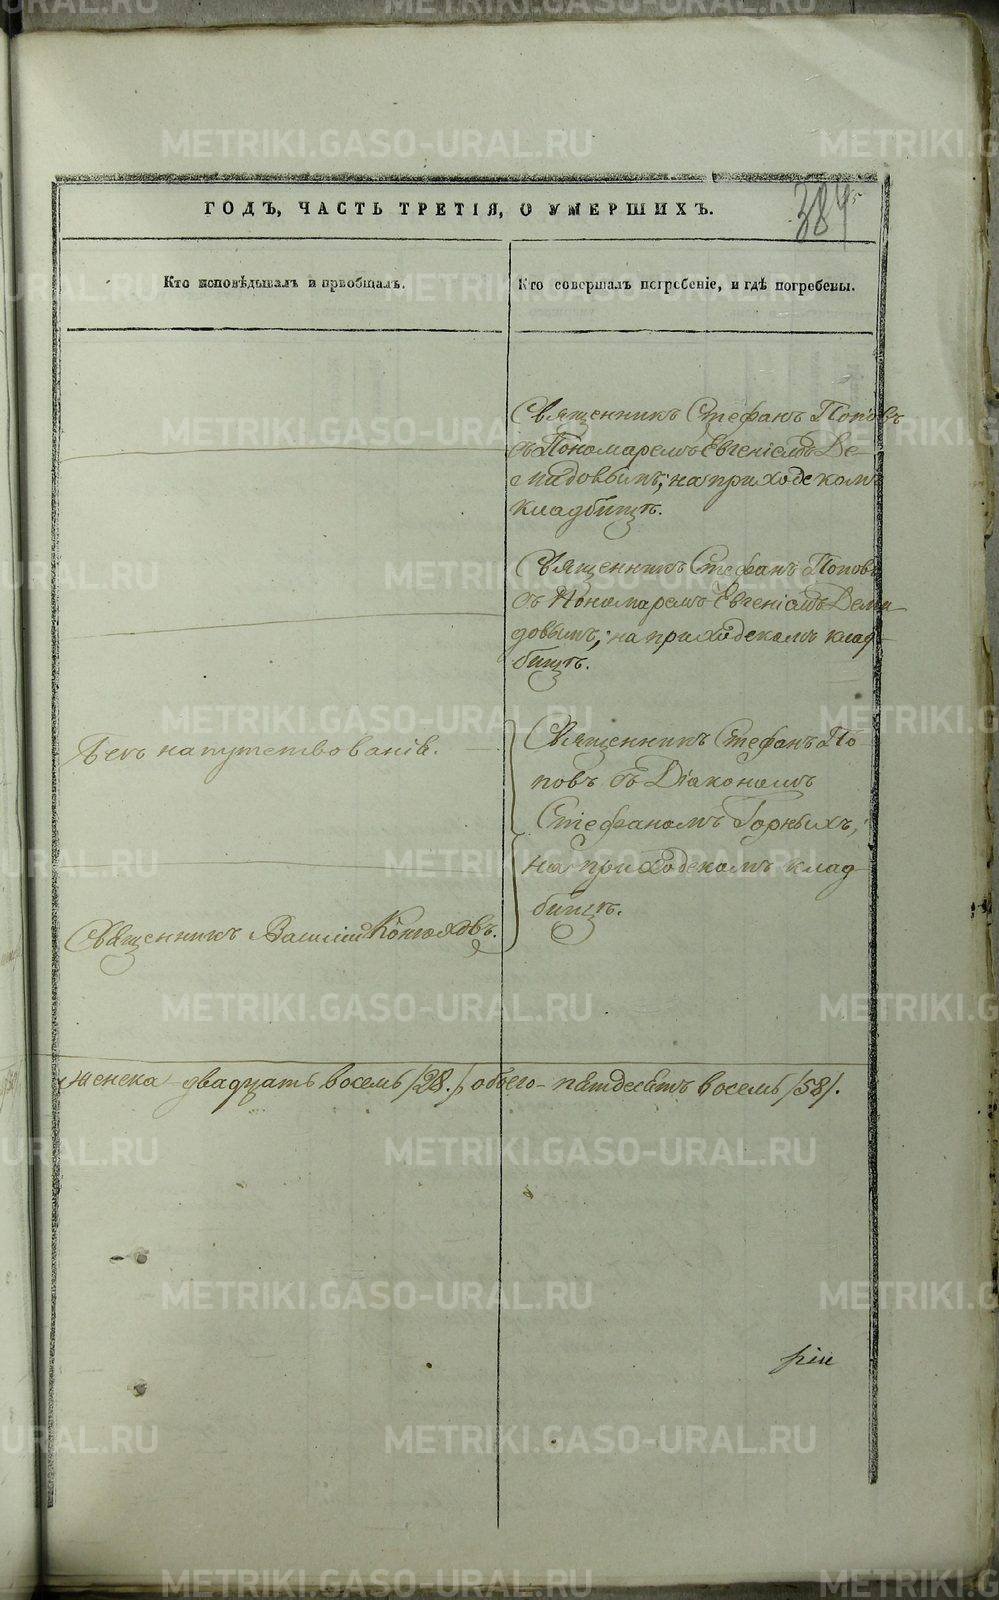 ГОДЪ, ЧАСТЬ ТРЕТІЯ, О УМЕРШИХЪ.
384
Кто исповѣдывалъ и пріобщалъ.
Кто совершалъ погребеніе, и гдѣ погребены.
Священникъ Стефанъ Поповъ
съ Пономаремъ Евгеніемъ Де-
мидовымъ; на приходскомъ
кладбищѣ.
Священникъ Стефанъ Поповъ
съ Пономаремъ Евгеніемъ Деми-
довымъ; на приходскомъ клад-
бищѣ.
Безъ напутствованія.
Священникъ Стефанъ По-
повъ съ Діакономъ
Стефаномъ Горныхъ,
на приходскомъ клад-
бищѣ.
Священникъ Василій
женска двадцать восемь /28./, обоего пятдесятъ восемь /58/.
METRIKI.GASO-URAL.RU